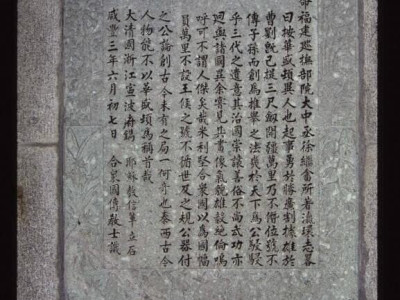 福建巡撫部院大中丞徐繼畬所著瀛環志畧
曰按華盛頓異人也起事勇於勝廣割據雄於
曹劉既已提三尺劒開疆萬里乃不僭位號不
傳子孫而創為推舉之法幾於天下為公駸駸
乎三代之遺意其治國崇讓善俗不尚武功亦
迥與諸國異余嘗見其畫像氣貌雄毅絕倫嗚
呼可不謂人傑矣哉米利堅合衆國以為國幅
員萬里不設王侯之號不循世及之規公器付
之公論創古今未有之局一何奇也泰西古今
人物能不以華盛頓為稱首哉
大清國浙江寧波府鐫 耶穌教信輩立石
咸豐三年六月初七日 合衆國傳教士識